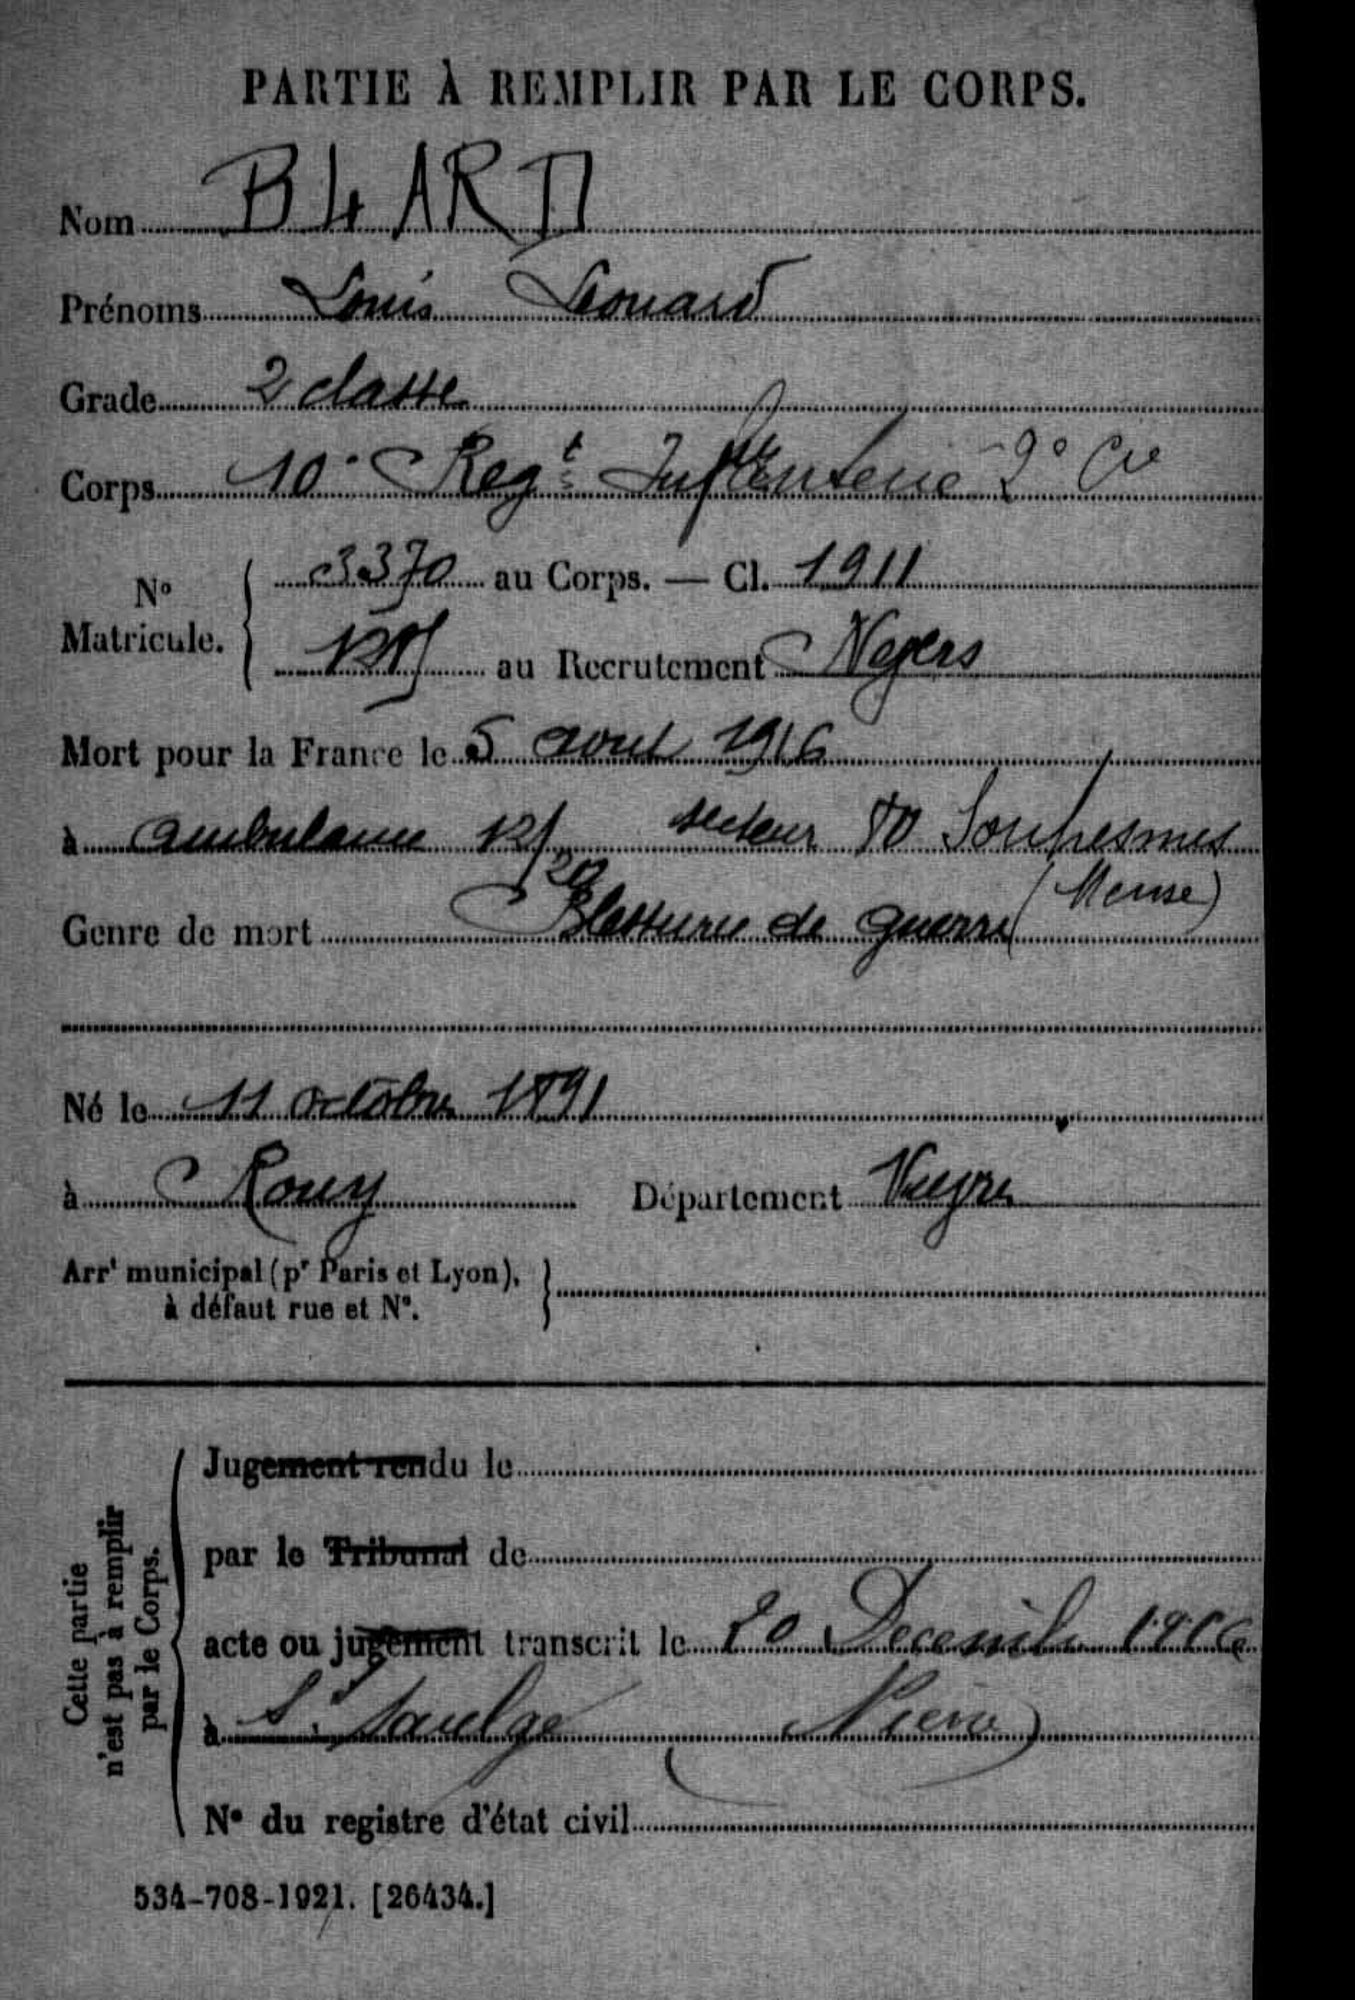 PARTIE À REMPLIR PAR LE CORPS.
Nom BLARD
Prénoms Louis Léonard
Grade 2 classe
Corps 10e Regt Infanterie 2e Cie
No Matricule. 3370 au Corps. — Cl. 1911
au Recrutement Nevers
Mort pour la France le 5 aout 1916
à ambulance 12/20 secteur 80 Souhesmes
(Meuse)
Genre de mort Blessures de guerre
Né le 11 octobre 1891
à Rouy Département Nièvre
Arrt municipal (pr Paris et Lyon),
à défaut rue et No.
Cette partie
n'est pas à remplir
par le Corps.
Jugement rendu le
par le Tribunal de
acte ou jugement transcrit le 20 Decembre 1916
à St Saulge Nièvre
No du registre d'état civil
534-708-1921. [26434.]